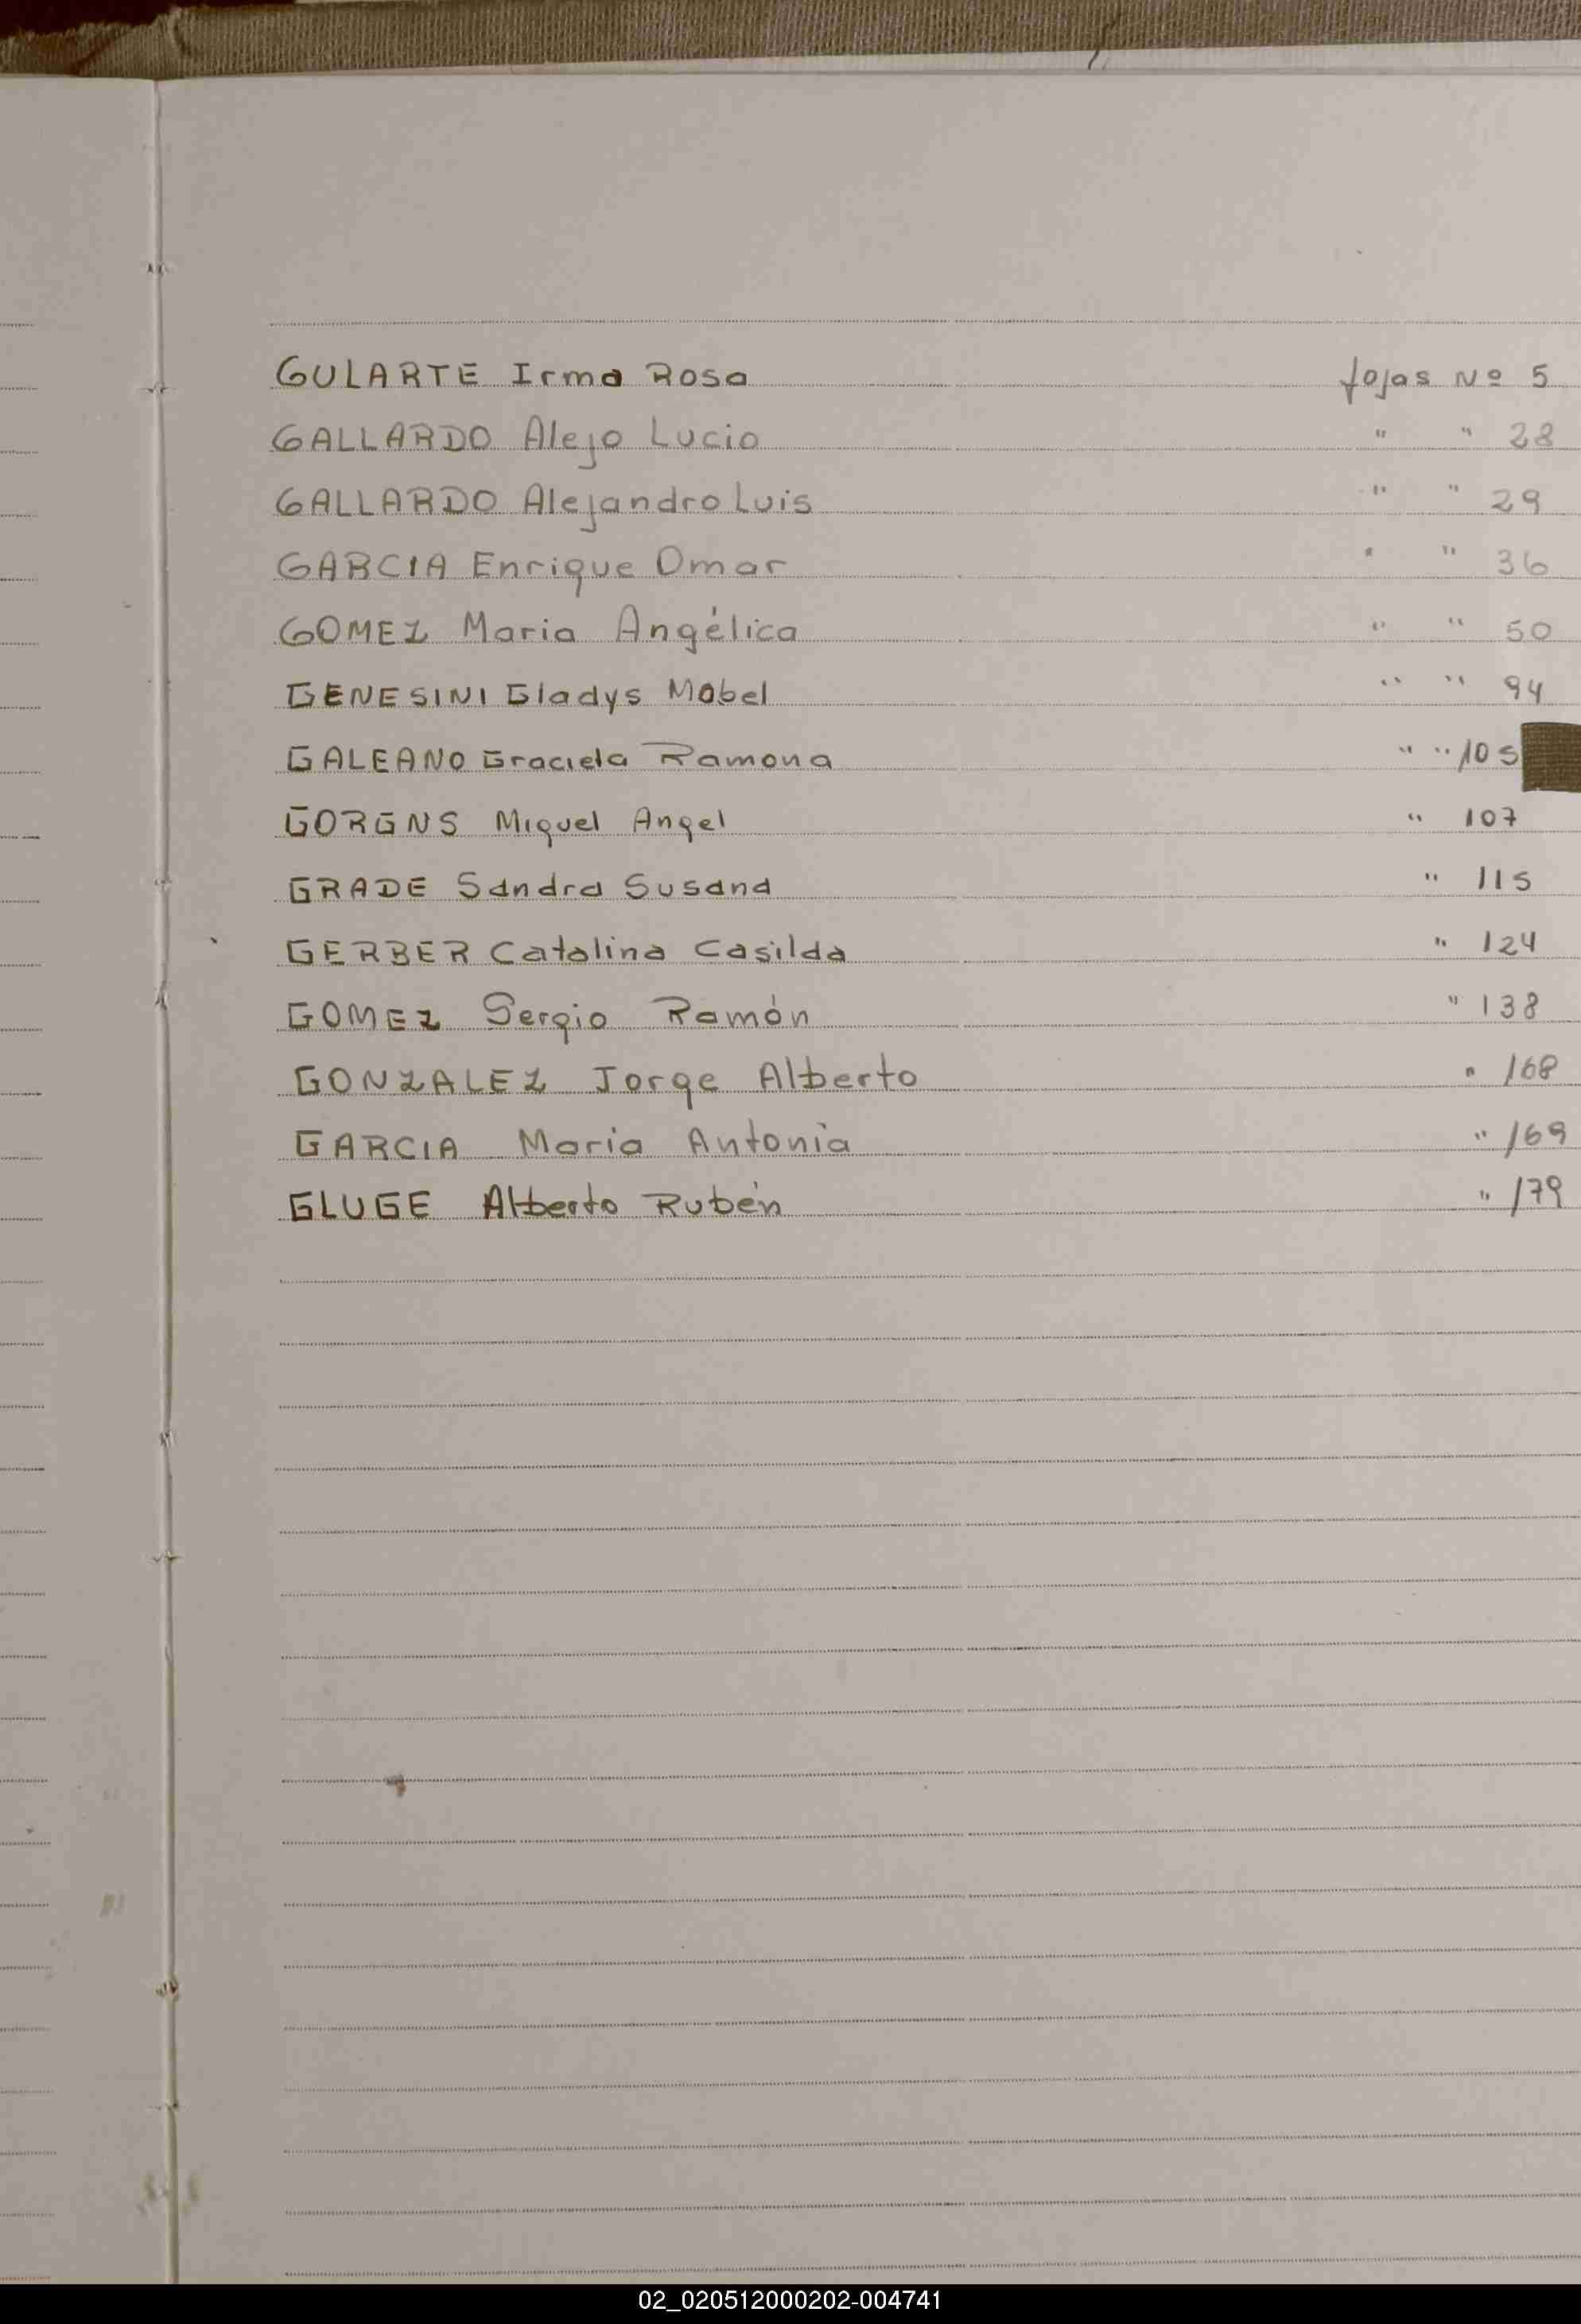 GULARTE Irma Rosa fojas Nº 5
GALLARDO Alejo Lucio " " 28
GALLARDO Alejandro Luis " " 29
GARCIA Enrique Omar " " 36
GOMEZ Maria Angélica " " 50
GENESINI Gladys Mabel " " 94
GALEANO Graciela Ramona " " 105
GORGNS Miguel Angel " 107
GRADE Sandra Susana " 115
GERBER Catalina Casilda " 124
GOMEZ Sergio Ramón " 138
GONZALEZ Jorge Alberto " 168
GARCIA Maria Antonia " 169
GLUGE Alberto Rubén " 179
02_020512000202-004741